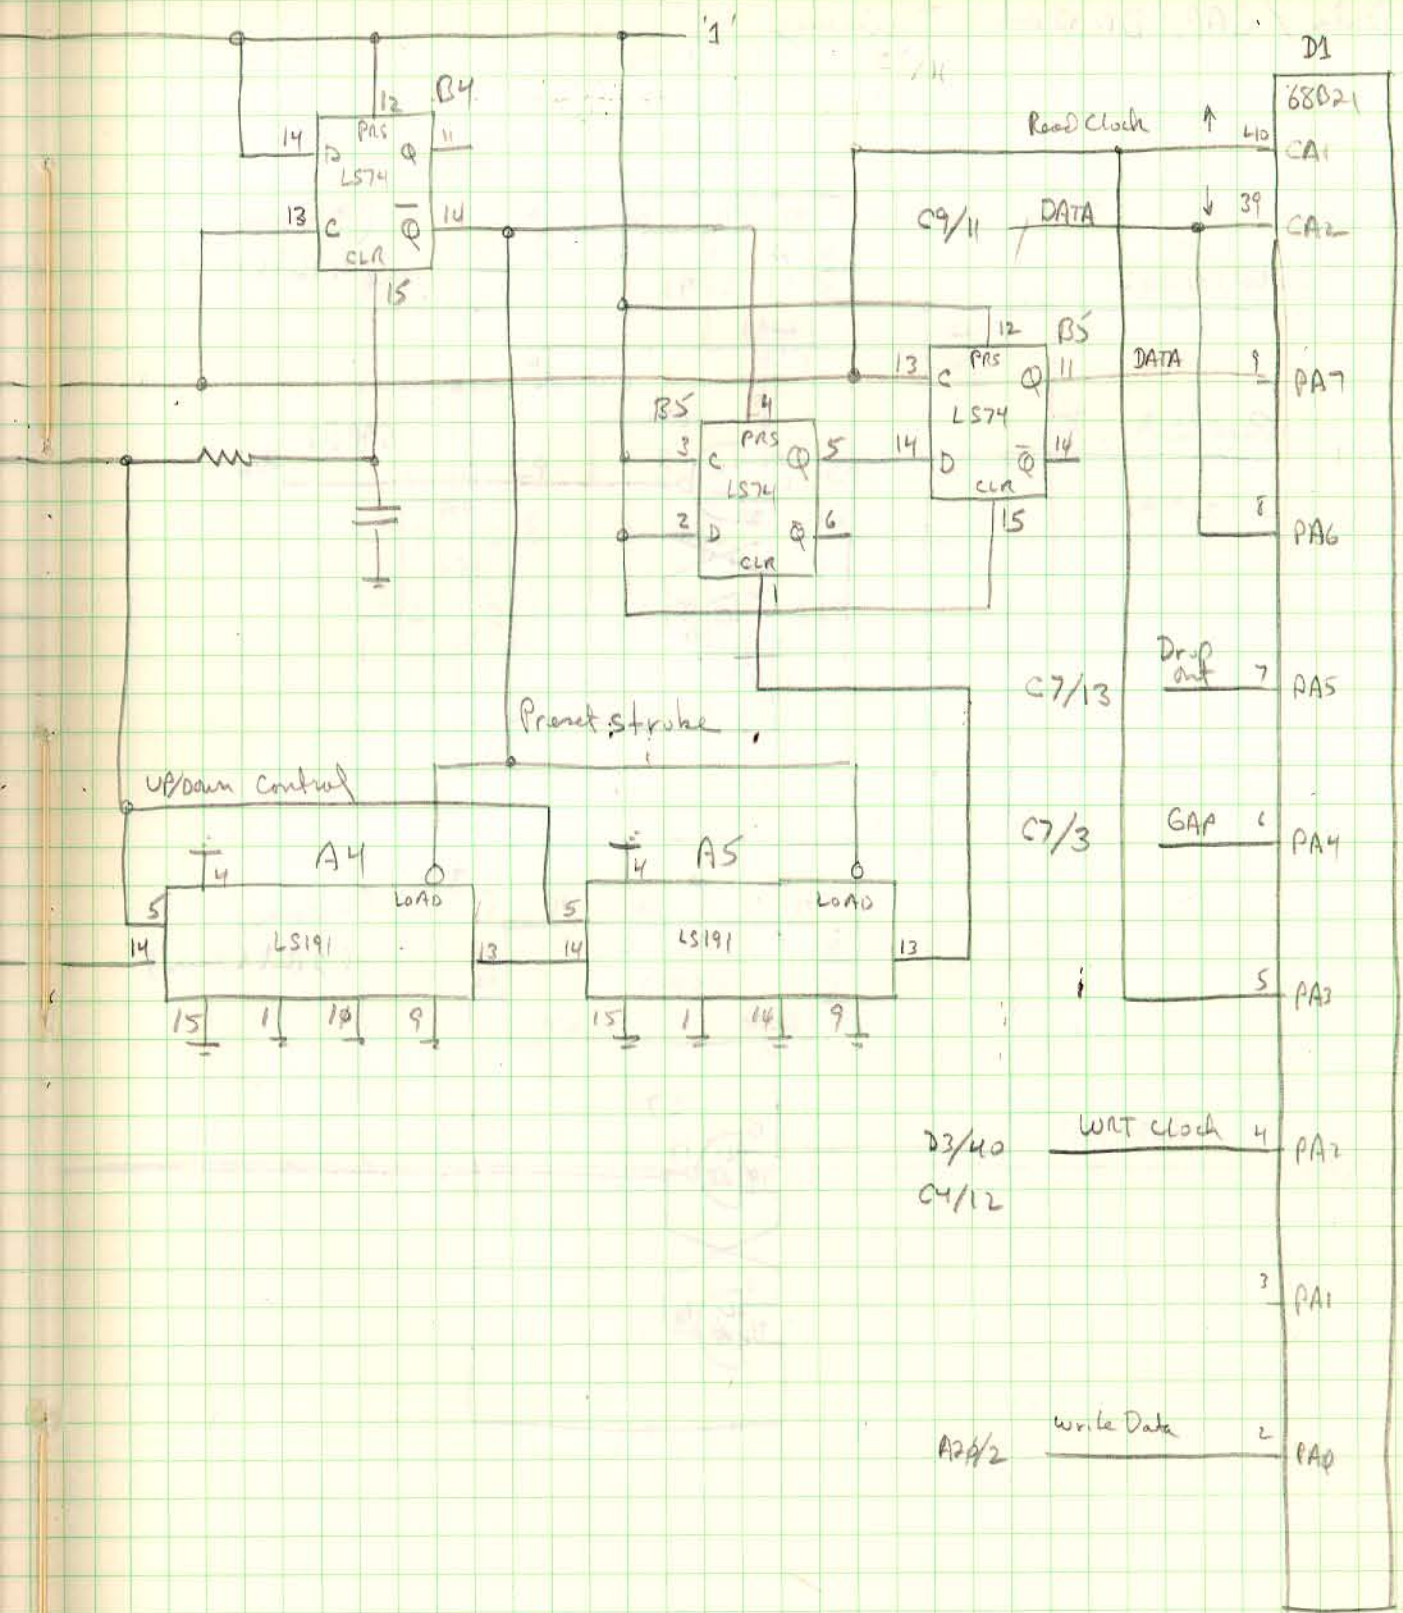 '1'
D1
B4
68B21
12
PRS
14 D Q 11
LS74
13 C Q 14
CLR
15
Read Clock ↑ 40 CA1
C9/11 DATA ↓ 39 CA2
12 B5
PRS
13 C Q 11 DATA 9 PA7
LS74
14 D Q 14
CLR
15
B5 4
PRS
3 C Q 5
LS74
2 D Q 6
CLR
1
8 PA6
C7/13 Drop out 7 PA5
Preset strobe
UP/Down Control
C7/3 GAP 6 PA4
4 A4 LOAD
5
14 LS191 13
15 1 10 9
4 A5 LOAD
5
14 LS191 13
15 1 14 9
5 PA3
D3/40 WRT Clock 4 PA2
C4/12
3 PA1
Write Data 2 PA0